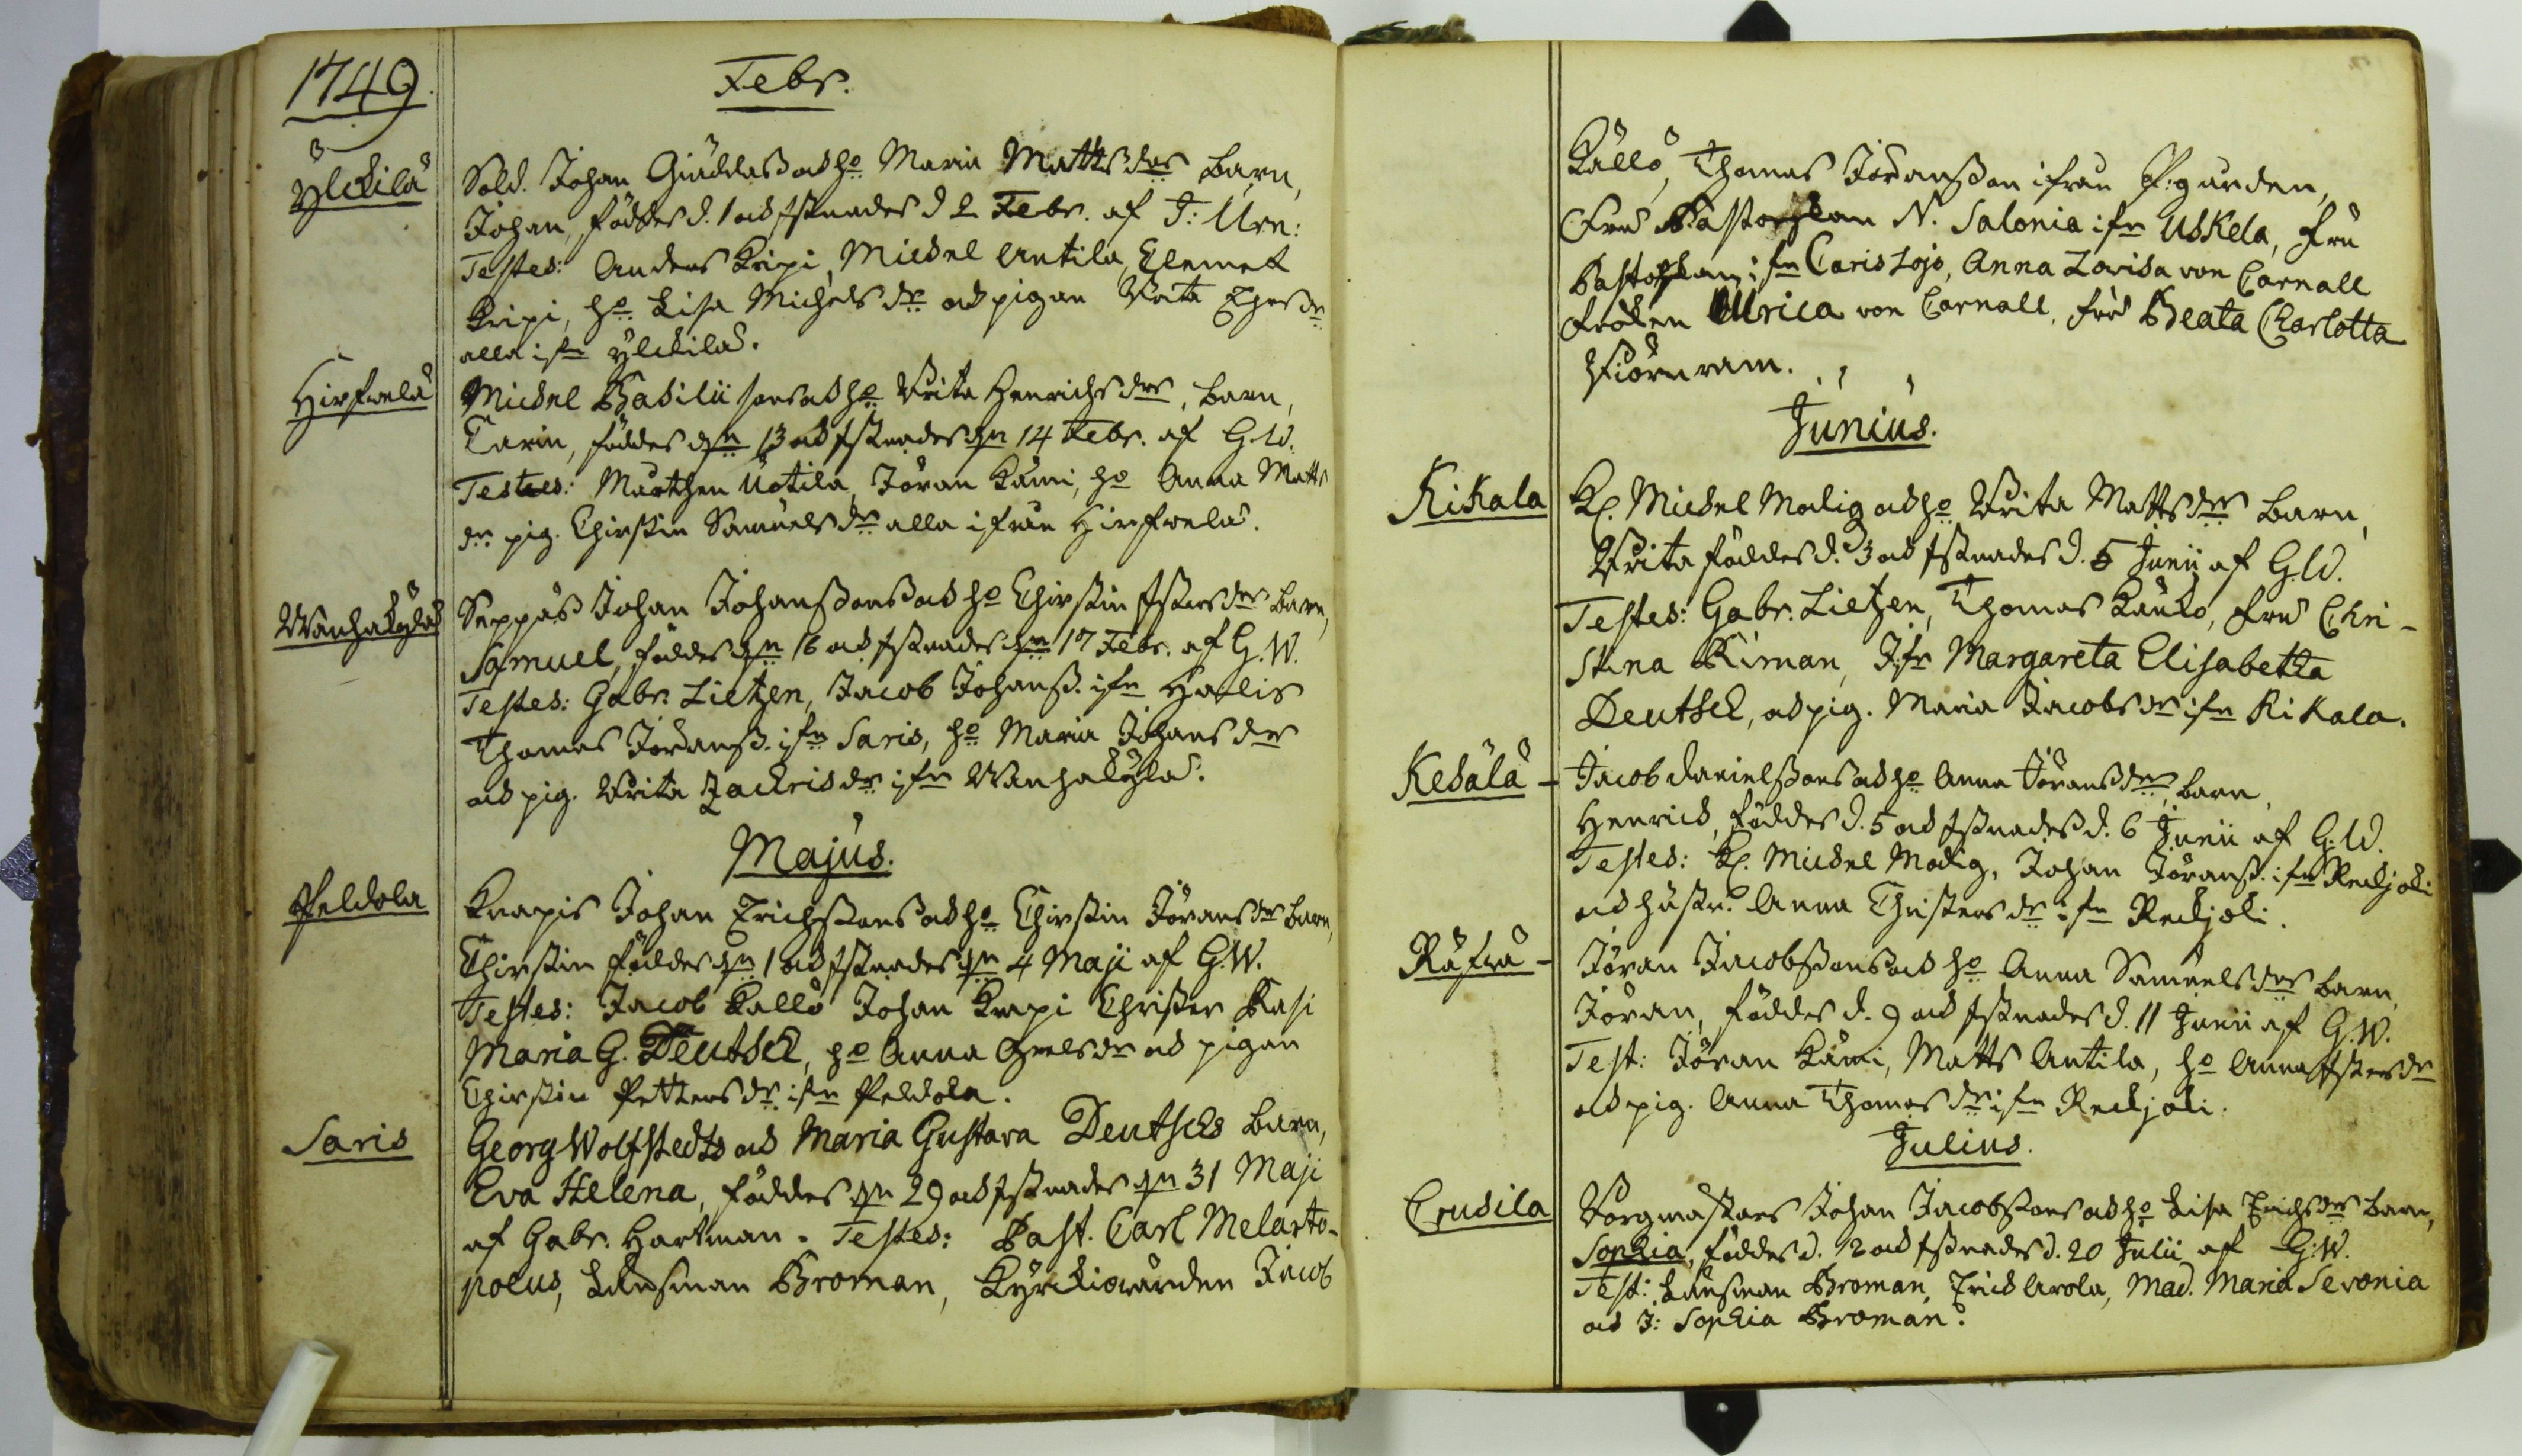 1749.
Febr.
Ylikilä
Sold. Johan Giäddas och h:o Maria Matts d:rs barn,
Johan, föddes d. 1 och Xstnades d 2 Febr. af J: Urn:
Testes: Anders Knipi, Michel Antila, Clemet
Knipi, h:o Lisa Michels d:r och pigan Brita Thos d:r
alla ifr. Ylikilä.
Hirfwelä
Michel Basilii sons och h:o Brita Henrichs d:rs, barn,
Carin, föddes d:n 13 och Xstnades d:n 14 Febr. af G.W.
Testes: Mårthen Uotila, Jöran Kämi, h:o Anna Matts
d:r pig. Chirstin Samuels d:r alla ifrån Hirfwelä.
Wanhakylä
Seppäs Johan Johanssons och h:o Chirstin Xsters d:rs barn,
Samuel, föddes d:n 16 och Xstnades d:n 17 Febr. af G.W.
Testes: Gabr. Lietzen, Jacob Johanss. ifr. Haslis
Thomas Jöranss. ifr. Saris, h:o Maria Johans d:r
och pig. Brita Zachris d:r ifr. Wanhakylä.
Majus.
Peldola
Knapis Johan Erichssons och h:o Chirstin Jörans d:rs barn,
Chirstin föddes d:n 1 och Xstnades d:n 4 Maji af G.W.
Testes: Jacob Källö Johan Knapi Christer Kasi
Maria G. Deutsch, h:o Anna d:r och pigan
Chirstin Petters d:r ifr. Peldola.
Saris
Georg Wolfstedts och Maria Gustava Deutschs barn,
Eva Helena, föddes d:n 29 och Xstnades d:n 31 Maji
af Gabr. Hartman. Testes: Past. Carl Melarto-
poeus, Länsman Broman, Kyrckiowärden Jacob
Källö, Thomas Jöransson ifrån P:gården,
Fru Pastorskan N. Salonia ifr. Uskela, Fru
Pastorskan ifr. Caris Lojo, Anna Lovisa von Carnall
Fröken Ulrica von Carnall, Fru Beata Charlotta
Stiernram.
Junius.
Rikala
K. Michel Modig och h:o Brita Matts d:rs barn,
Brita föddes d. 3 och Xstnades d. 5 Junii af G.W.
Testes: Gabr. Lietzen, Thomas Kauko, Fru Chri-
stina Kiman, J:fr Margareta Elisabetta
Deutsch, och pig. Maria Jacobs d:r ifr. Rikala.
Ketälä
Jacob Danielssons och h:o Anna Jörans d:rs, barn,
Henrich, föddes d. 5 och Xstnades d. 6 Junii af G.W.
Testes: K. Michel Modig, Johan Jöranss. ifr. Reckjoki
och hustr. Anna Christers d:r ifr. Reckjoki.
Räfwä
Jöran Jacobssons och h:o Anna Samuels d:rs barn,
Jöran, föddes d. 9 och Xstnades d. 11 Junii af G.W.
Test: Jöran Kämi, Matts Antila, h:o Anna Xsters d:r
och pig. Anna Thomas d:r ifr. Reckjoki.
Julius.
Crusila
Borgmästars Johan Jacobssons och h:o Lisa Erichs d:rs barn,
Sophia, föddes d. 12 och Xstnades d. 20 Julii af G.W.
Test: Länsman Broman, Erich Arola, Mad. Maria Sevonia
och J: Sophia Broman.